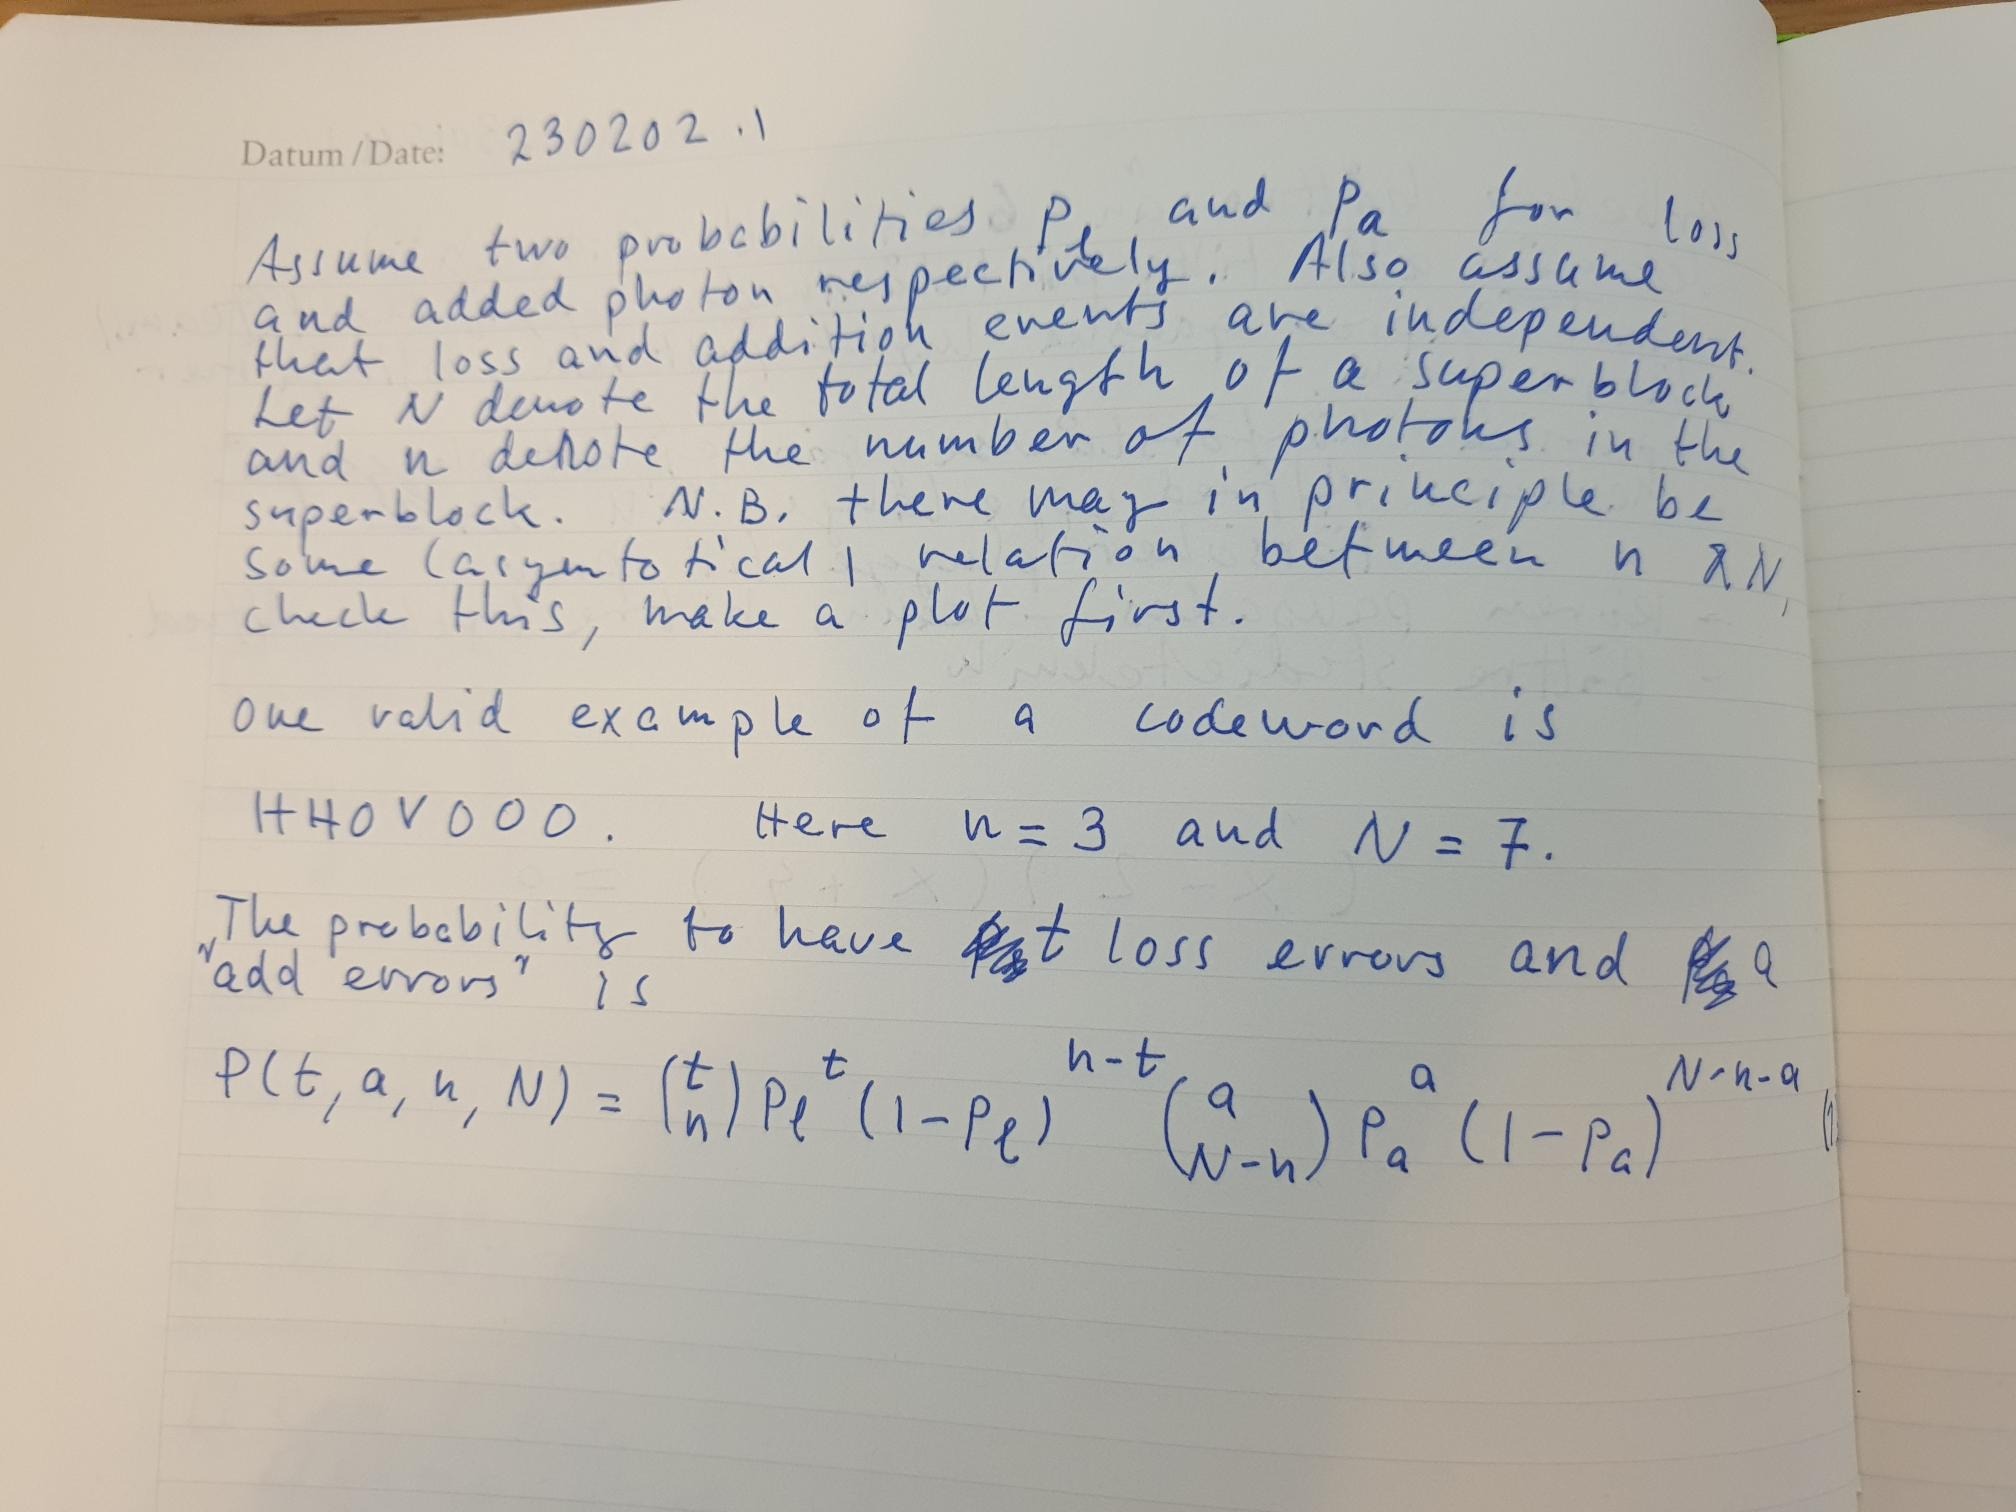 Datum / Date: 230202.1
Assume two probabilities Pℓ and Pa for loss
and added photon respectively. Also assume
that loss and addition events are independent.
Let N denote the total length of a superblock
and n denote the number of photons in the
superblock. N.B. there may in principle be
some (asymtotical) relation between n & N,
check this, make a plot first.
One valid example of a codeword is
HH0V000. Here n = 3 and N = 7.
The probability to have t loss errors and a
"add errors" is
P(t, a, n, N) = (t n) Pℓ^t (1-Pℓ)^n-t (a N-n) Pa^a (1-Pa)^N-n-a